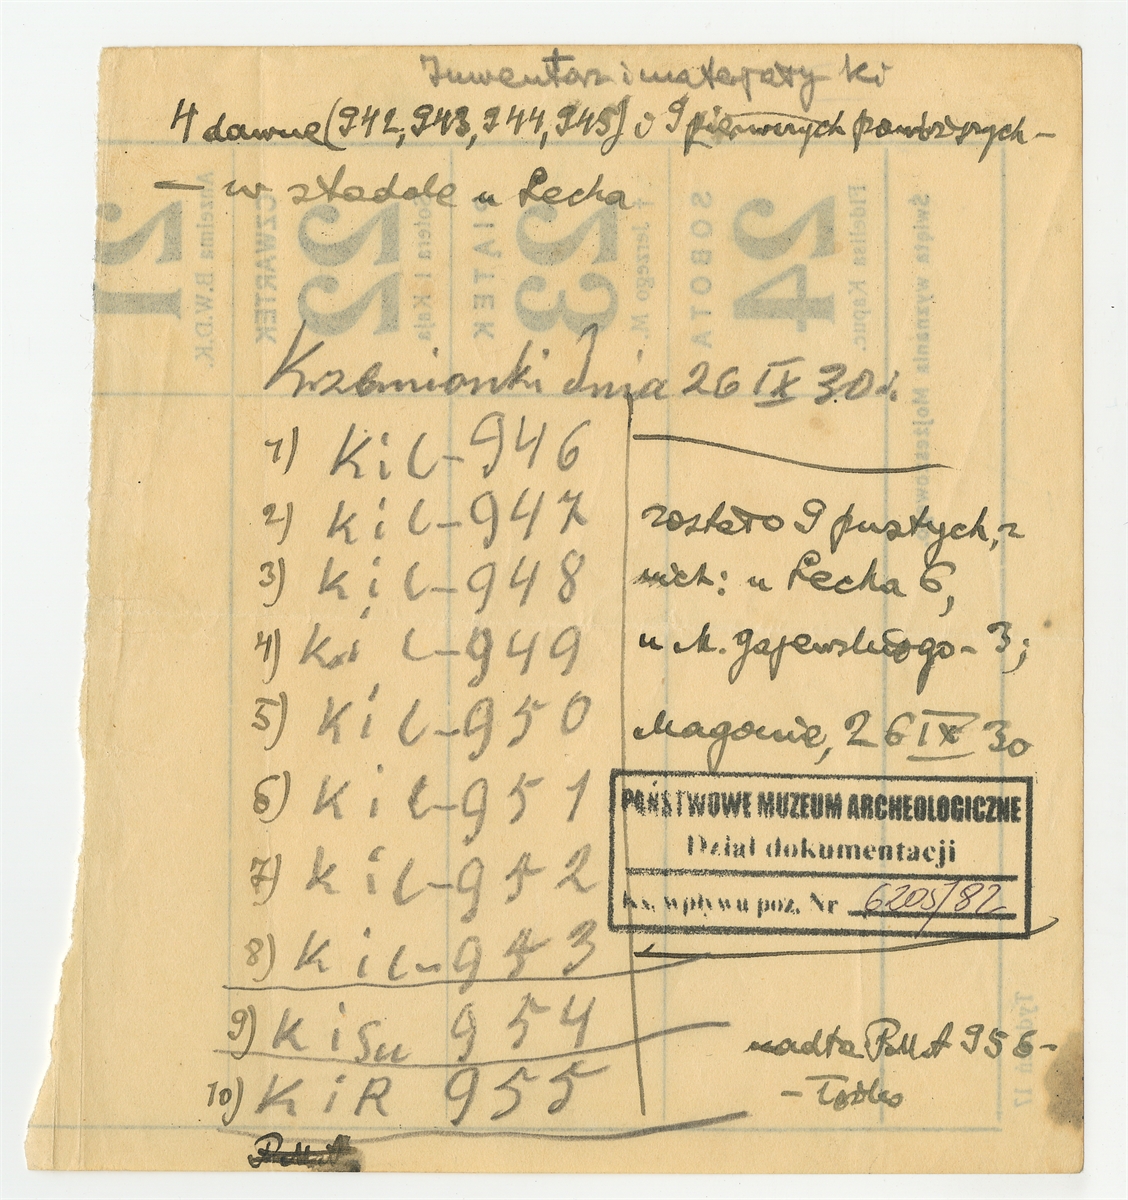 Inwentarz i materjały ki
4 dawne (942, 943, 944, 945) i 9 pierwszych powyższych –
– w stodole u Lecha
Krzemionki dnia 26 IX 30 r.
1) Kil – 946
2) Kil – 947
3) Kil – 948
4) Kil – 949
5) Kil – 950
6) Kil – 951
7) Kil – 952
8) Kil – 953
9) KiSu 954
10) KiR 955
zostało 9 pustych, z
nich: u Lecha 6,
u M. Gajewskiego – 3;
Magonie, 26 IX 30
PAŃSTWOWE MUZEUM ARCHEOLOGICZNE
Dział dokumentacji
Ks. wpływu poz. Nr 6205/82
nadto PMA 956 –
21
CZWARTEK
Anzelma B.W.D.K.
22
PIĄTEK
Sotera i Kaja
23
SOBOTA
† Jerzego M.
24
Fidelisa Kapuc.
Święta wyznania Mojżeszowego
Tydzień 17